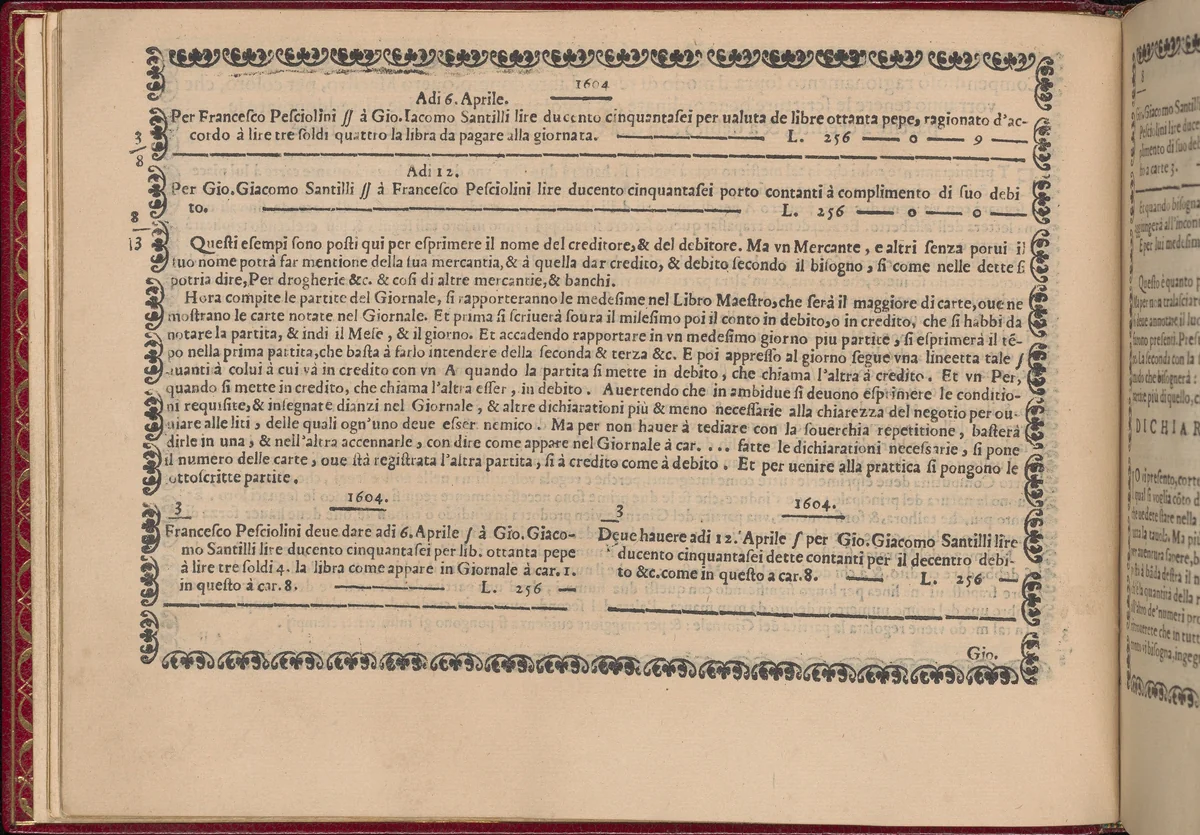 1604
Adi 6. Aprile.
Per Francesco Pesciolini // à Gio.Iacomo Santilli lire ducento cinquantasei per ualuta de libre ottanta pepe, ragionato d'ac-
cordo à lire tre soldi quattro la libra da pagare alla giornata. L. 256 — 0 — 9
3
8
Adi 12.
Per Gio.Giacomo Santilli // à Francesco Pesciolini lire ducento cinquantasei porto contanti à complimento di suo debi
to. L. 256 — 0 — 0
8
13
Questi esempi sono posti qui per esprimere il nome del creditore, & del debitore. Ma vn Mercante, e altri senza porui il
suo nome potrà far mentione della sua mercantia, & à quella dar credito, & debito secondo il bisogno, si come nelle dette si
potria dire, Per drogherie &c. & così di altre mercantie, & banchi.
Hora compite le partite del Giornale, si rapporteranno le medesime nel Libro Maestro, che serà il maggiore di carte, oue ne
mostrano le carte notate nel Giornale. Et prima si scriuerà soura il milesimo poi il conto in debito, o in credito, che si habbi da
notare la partita, & indi il Mese, & il giorno. Et accadendo rapportare in vn medesimo giorno piu partite, si esprimerà il tē-
po nella prima partita, che basta à farlo intendere della seconda & terza &c. E poi appresso al giorno segue vna lineetta tale /
auanti à colui à cui và in credito con vn A quando la partita si mette in debito, che chiama l'altra à credito. Et vn Per,
quando si mette in credito, che chiama l'altra esser, in debito. Auertendo che in ambidue si deuono esprimere le conditio-
ni requisite, & insegnate dianzi nel Giornale, & altre dichiarationi più & meno necessarie alla chiarezza del negotio per ou-
uiare alle liti, delle quali ogn'uno deue esser nemico. Ma per non hauer à tediare con la souerchia repetitione, basterà
dirle in una, & nell'altra accennarle, con dire come appare nel Giornale à car. ... fatte le dichiarationi necessarie, si pone
il numero delle carte, oue stà registrata l'altra partita, si à credito come à debito. Et per uenire alla prattica si pongono le
sottoscritte partite.
1604.
3
Francesco Pesciolini deue dare adi 6. Aprile / à Gio. Giaco-
mo Santilli lire ducento cinquantasei per lib. ottanta pepe
à lire tre soldi 4. la libra come appare in Giornale à car. 1.
in questo à car. 8. L. 256
1604.
3
Deue hauere adi 12. Aprile / per Gio. Giacomo Santilli lire
ducento cinquantasei dette contanti per il decentro debi-
to &c. come in questo à car. 8. L. 256
Gio.
8
Gio.Giacomo Santilli
DICHIAR